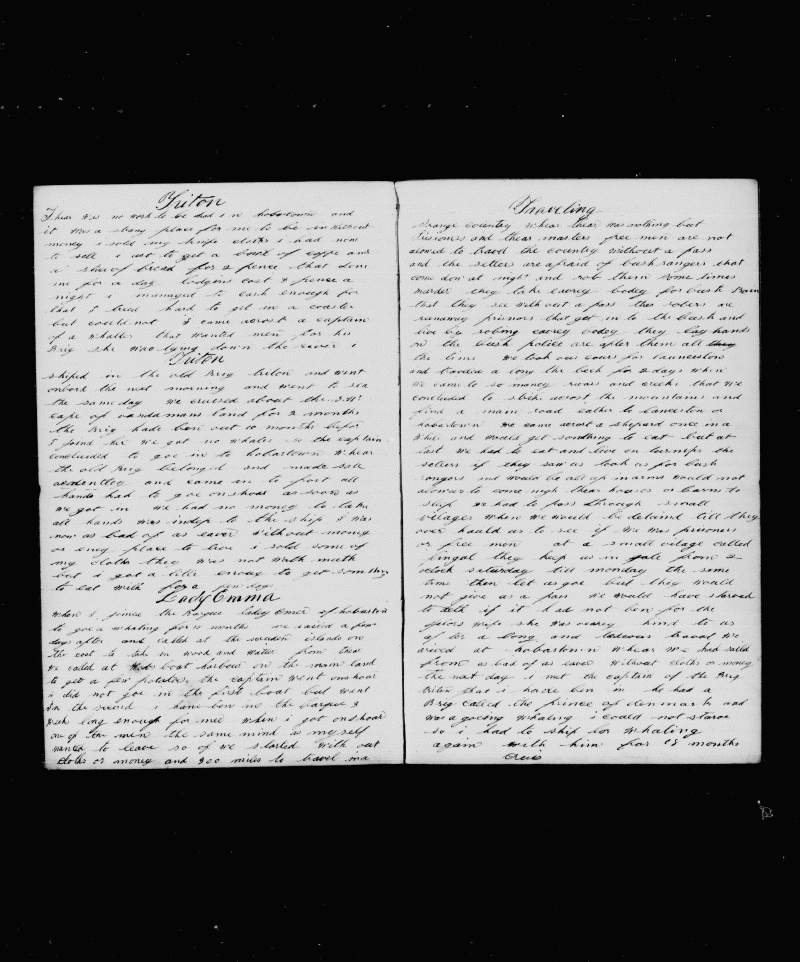 Triton
Thear was no work to be had in hobartown and
it was a strang place for me to be in without
money i sold my knife cloths i had non
to sell i ust to get a bowl of coffe and
a slice of bread for 2 pence that don
me for a day lodgins cost 3 pence a
night i managed to earn enough for
that i tried hard to get in a coaster
but could not i came acrost a captain
of a whaler that wanted men for his
Brig she was lying down the river i
Triton
shiped in the old Brig triton and went
onbord the next morning and went to sea
the same day we cruised about the S.W.
cape of vandamans land for 2 months
the Brig hade ben out 10 months befor
I joind her we got no whales so the captain
concluded to goe in to hobartown whear
the old Brig belongd and made sale
acidentley and came in to port all
hands had to goe onshoar as soon as
we got in we had no money to take
all hands was indep to the ship I was
now as bad of as eaver without money
or eney place to live i sold some of
my cloths they was not worth mutch
but i got a litle money to get somthing
to eat with for a few days
Lady Emma
when I joined the Barque Lady Emer of hobarton
to goe a whaling for 10 months we sailed a few
days after and called at the sweden islands on
the cost to take in wood and water from thear
we called at boat harbour on the main land
to get a few potatoes the captain went onshoar
i did not goe in the first boat but went
in the second i have ben in the barque 3
weeks long enough for mee when i got onshoar
one of the men the same mind as my self
wanted to leave so of we started with out
cloths or money and 300 miles to travel in a
Traveling
strange country whear thear was nothing but
Prisioners and thear masters free men are not
alowed to travel the country without a pass
and the setlers are afraid of bush rangers that
come don at night and rob them some times
murder they take eavrey bodey for bush rangers
that they see with out a pass thes robers are
runaway prisnors that get in to the bush and
live by robing eavrey bodey they lay hands
on the bush police are after them all they
the time we took our cours for launcestion
and traveled a long the bech for 2 days when
we came to so maney rivers and creeks that we
concluded to strike acrost the mountains and
find a main road eather to lanceston or
hobartown we came acrost a shepard once in a
while and would get somthing to eat but at
last we had to eat and live on turnips the
setlers if they saw us took us for bush
rangers and would be all up in arms would not
alow us to come nigh thear houses or barns to
sleep we had to pass through small
vilages when we would be detained till they
over hauld us to see if we was prisoners
or free men at a small vilage called
fingal they keep us in gale from 2
oclock saturday till monday the same
time then let us goe but they would
not give us a pass we would have starved
to deth if it had not ben for the
galors wife she was vearey kind to us
after a long and tedeous travel we
arived at hobartown whear we had saild
from as bad of as eaver without cloths or money
the next day i met the captain of the Brig
triton that i have ben in he had a
Brig called the prince of denmark and
was a goeing whaling i could not starve
so i had to ship for whaling
again with him for 18 months